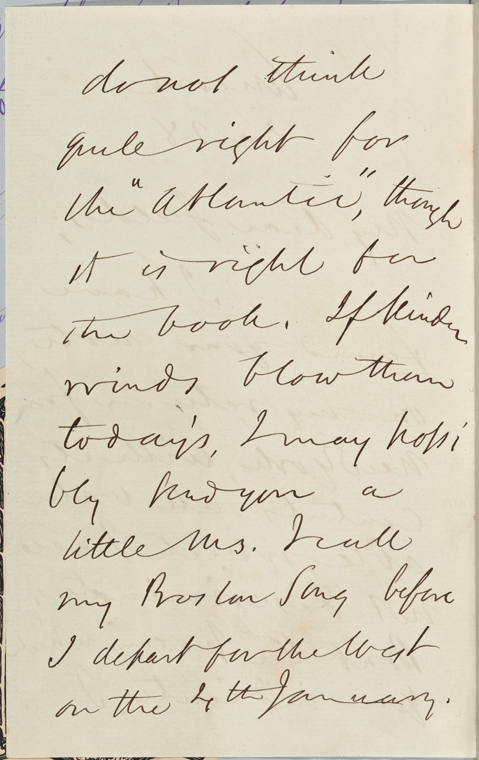 do not think
quite right for
the "Atlantic", though
it is right for
the book. If kinder
winds blow than
today's, I may possi
bly send you a
little Ms. I call
my Boston Song before
I depart for the West
on the 4th January.